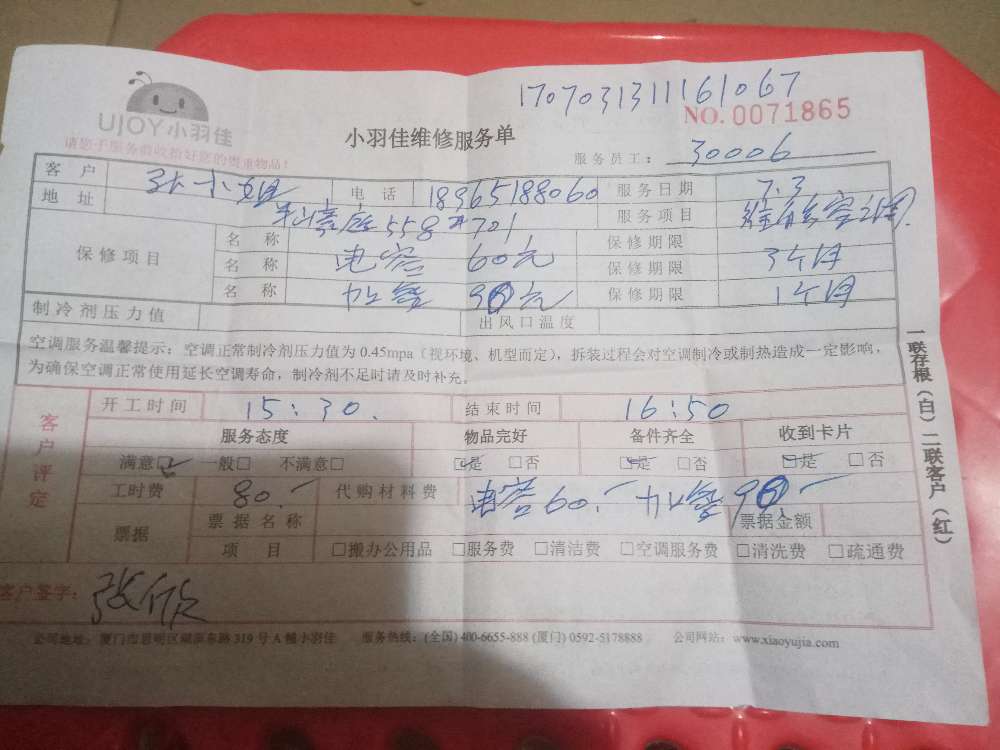 17070313111161067
UJOY小羽佳
NO.0071865
小羽佳维修服务单
请您于服务前收拾好您的贵重物品！
服务员工： 30006
客 户 张小姐 电 话 18965188060 服务日期 7.3
地 址 558 701 服务项目 维修空调
保修项目 名 称 保修期限
名 称 电容 60元 保修期限 3个月
名 称 加 元 保修期限 1个月
制冷剂压力值 出风口温度
空调服务温馨提示：空调正常制冷剂压力值为 0.45mpa（视环境、机型而定），拆装过程会对空调制冷或制热造成一定影响，
为确保空调正常使用延长空调寿命，制冷剂不足时请及时补充。
客户评定
开工时间 15:30. 结束时间 16:50
服务态度 物品完好 备件齐全 收到卡片
满意□ 一般□ 不满意□ □是 □否 □是 □否 □是 □否
工时费 80.- 代购材料费 电容60.- 加
票据 票据名称 票据金额
项 目 □搬办公用品 □服务费 □清洁费 □空调服务费 □清洗费 □疏通费
客户签字： 张欣
公司地址：厦门市思明区 东路 319 号 A 幢小羽佳 服务热线：(全国) 400-6655-888 (厦门) 0592-5178888 公司网站：www.xiaoyujia.com
一联存根（白）二联客户（红）